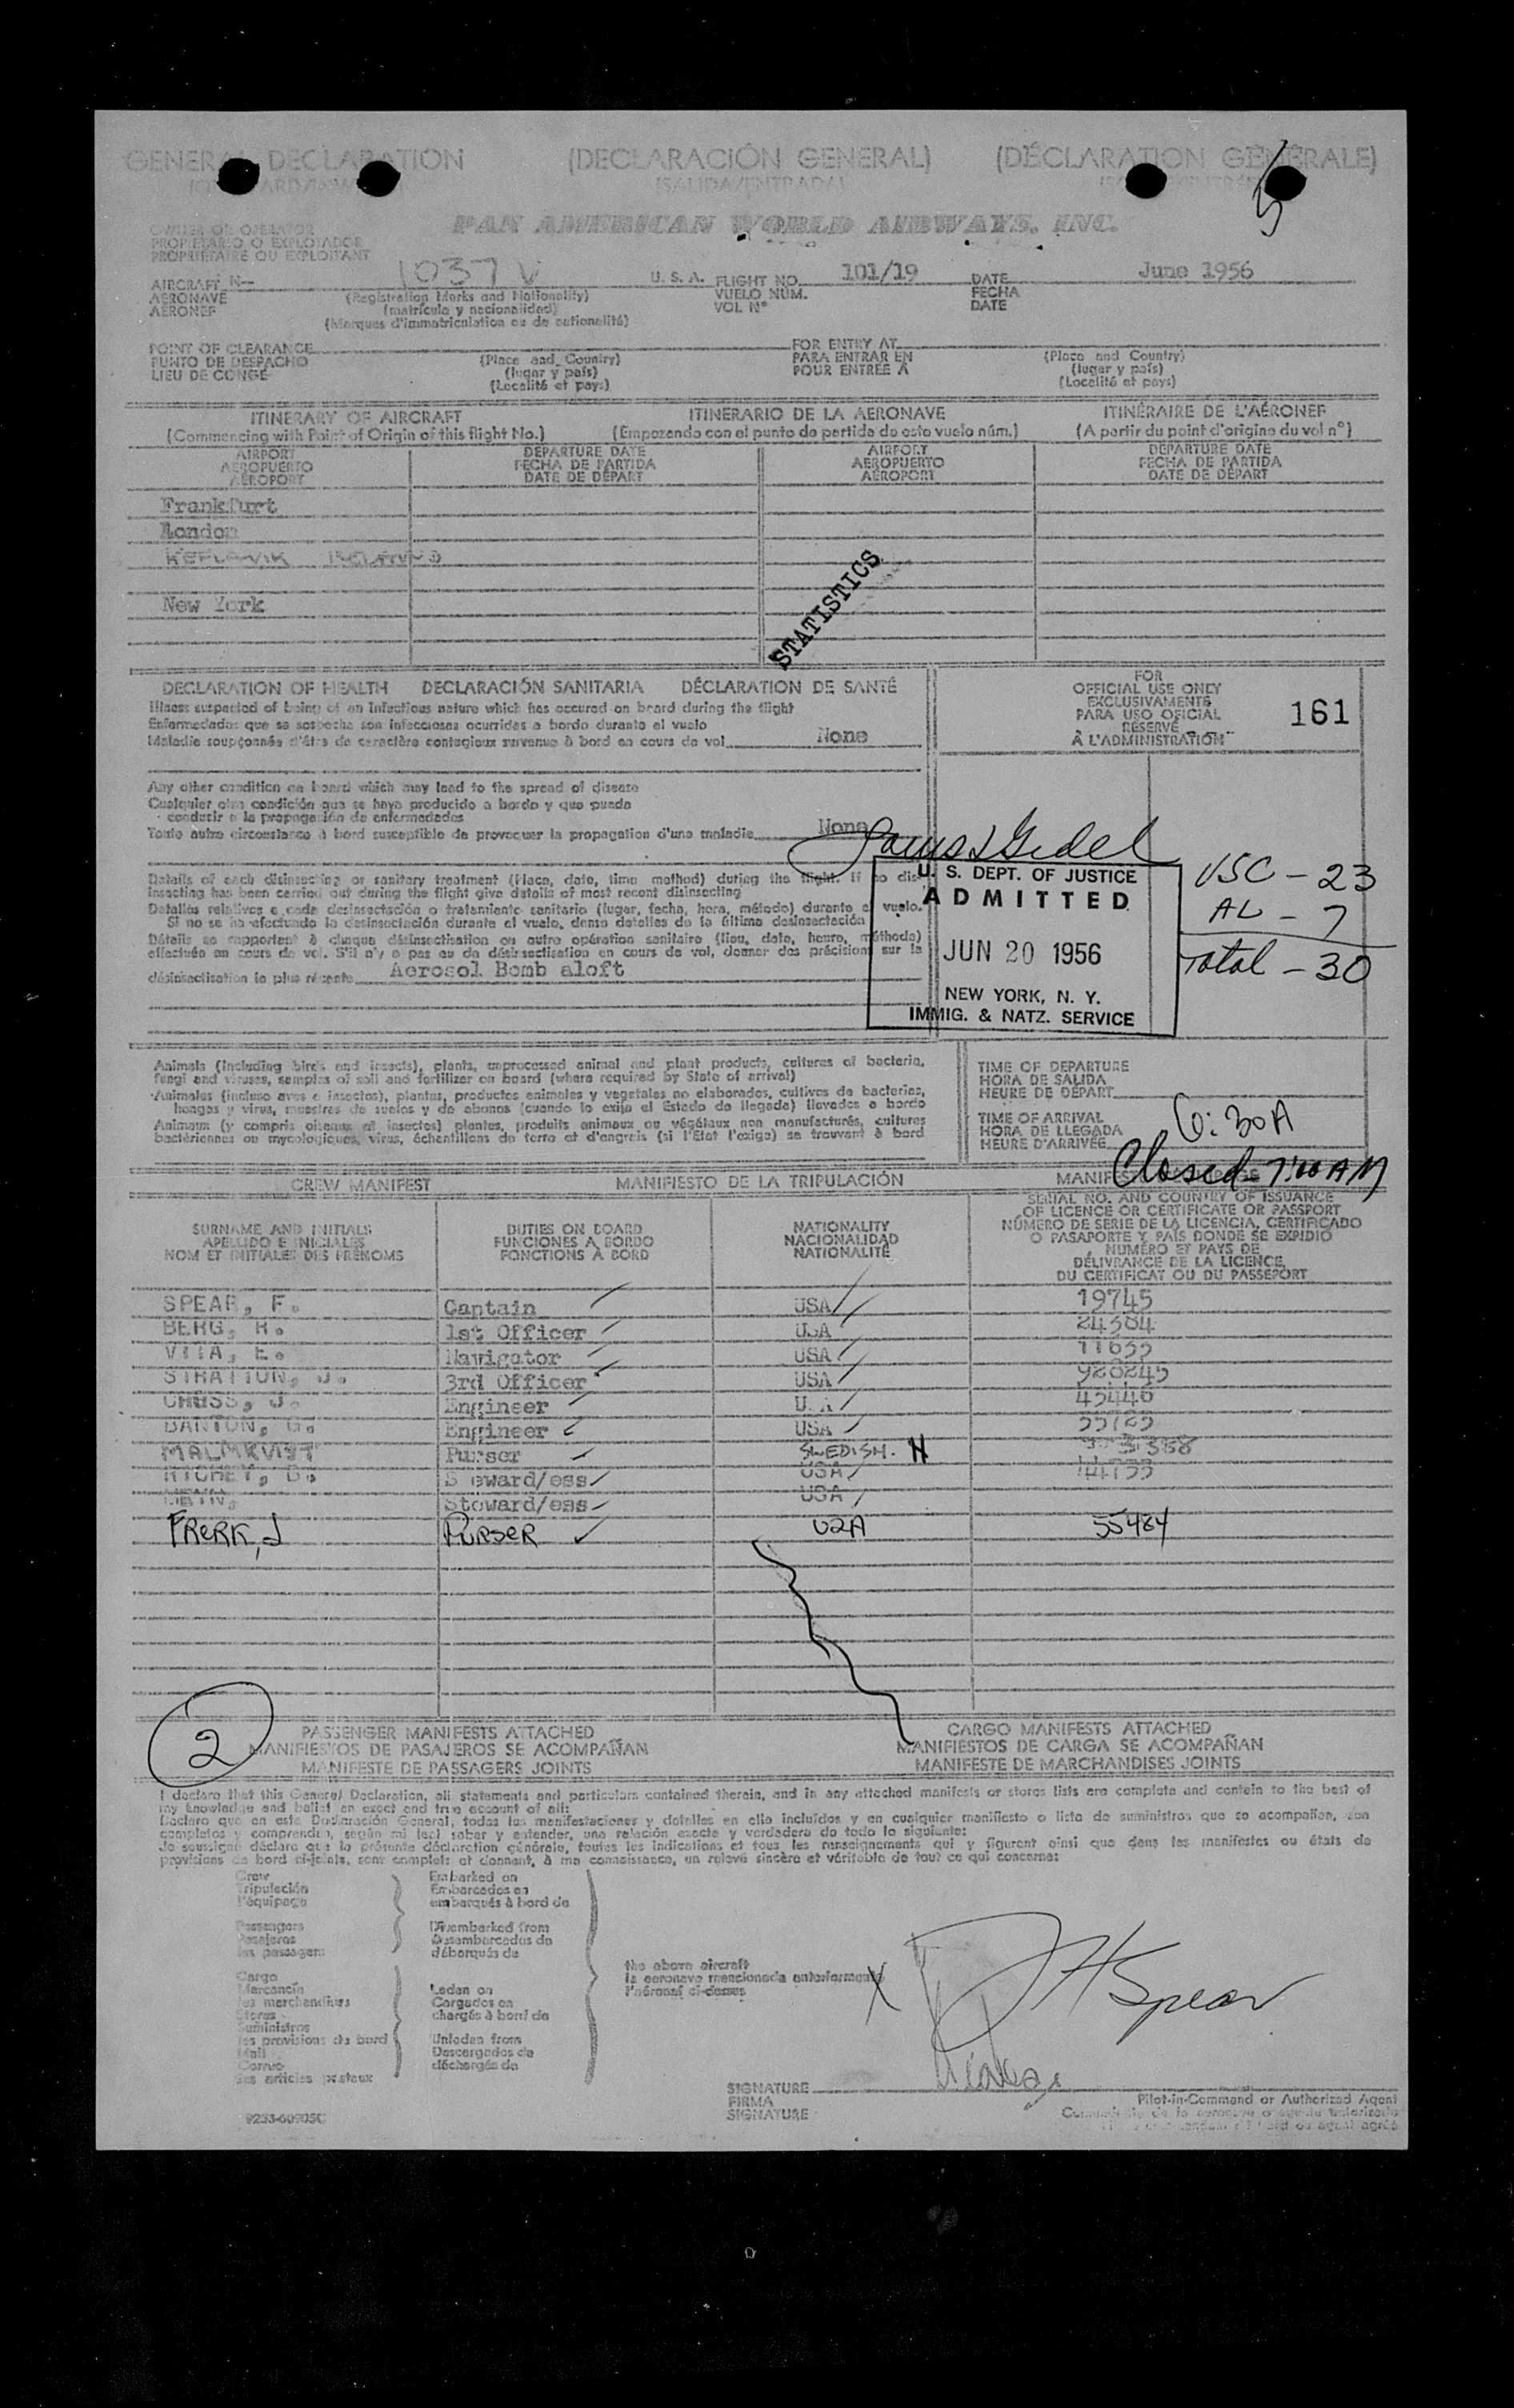 GENERAL DECLARATION (DECLARACIÓN GENERAL) (DÉCLARATION GÉNÉRALE)
(SALIDA/ENTRADA)
PAN AMERICAN WORLD AIRWAYS, INC.
OWNER OR OPERATOR
PROPIETARIO O EXPLOTADOR
PROPRIÉTAIRE OU EXPLOITANT
AIRCRAFT N— 1037V U. S. A. FLIGHT NO. 101/19 DATE June 1956
AERONAVE (Registration Marks and Nationality) VUELO NÚM. FECHA
AÉRONEF (matrícula y nacionalidad) VOL Nº DATE
(Marques d'immatriculation ou de nationalité)
POINT OF CLEARANCE FOR ENTRY AT
PUNTO DE DESPACHO (Place and Country) PARA ENTRAR EN (Place and Country)
LIEU DE CONGÉ (lugar y país) POUR ENTRÉE À (lugar y país)
(Localité et pays) (Localité et pays)
ITINERARY OF AIRCRAFT ITINERARIO DE LA AERONAVE ITINÉRAIRE DE L'AÉRONEF
(Commencing with Point of Origin of this flight No.) (Empezando con el punto de partida de este vuelo núm.) (A partir du point d'origine du vol nº)
AIRPORT DEPARTURE DATE AIRPORT DEPARTURE DATE
AEROPUERTO FECHA DE PARTIDA AEROPUERTO FECHA DE PARTIDA
AÉROPORT DATE DE DÉPART AÉROPORT DATE DE DÉPART
Frankfurt
London
KEFLAVIK ICELAND
New York
STATISTICS
DECLARATION OF HEALTH DECLARACIÓN SANITARIA DÉCLARATION DE SANTÉ
Illness suspected of being of an Infectious nature which has occured on board during the flight
Enfermedades que se sospecha son infecciosas ocurridas a bordo durante el vuelo
Maladie soupçonnée d'être de caractère contagieux survenue à bord en cours de vol None
FOR
OFFICIAL USE ONLY
EXCLUSIVAMENTE
PARA USO OFICIAL
RÉSERVÉ
À L'ADMINISTRATION
161
Any other condition on board which may lead to the spread of disease
Cualquier otra condición que se haya producido a bordo y que pueda
conducir a la propagación de enfermedades
Toute autre circonstance à bord susceptible de provoquer la propagation d'une maladie None
Details of each disinsecting or sanitary treatment (Place, date, time method) during the flight. If no dis-
insecting has been carried out during the flight give details of most recent disinsecting
Detalles relativos a cada desinsectación o tratamiento sanitario (lugar, fecha, hora, método) durante el vuelo.
Si no se ha efectuado la desinsectación durante el vuelo, dense detalles de la última desinsectación
Détails se rapportant à chaque désinsectisation ou autre opération sanitaire (lieu, date, heure, méthode)
effectuée en cours de vol. S'il n'y a pas eu de désinsectisation en cours de vol, donner des précisions sur la
désinsectisation la plus récente Aerosol Bomb aloft
U. S. DEPT. OF JUSTICE
ADMITTED
JUN 20 1956
NEW YORK, N. Y.
IMMIG. & NATZ. SERVICE
USC - 23
AL - 7
Total - 30
Animals (including birds and insects), plants, unprocessed animal and plant products, cultures of bacteria,
fungi and viruses, samples of soil and fertilizer on board (where required by State of arrival)
Animales (incluso aves e insectos), plantas, productos animales y vegetales no elaborados, cultivos de bacterias,
hongos y virus, muestras de suelos y de abonos (cuando lo exija el Estado de llegada) llevados a bordo
Animaux (y compris oiseaux et insectes) plantes, produits animaux ou végétaux non manufacturés, cultures
bactériennes ou mycologiques, virus, échantillons de terre et d'engrais (si l'État l'exige) se trouvant à bord
TIME OF DEPARTURE
HORA DE SALIDA
HEURE DE DÉPART
TIME OF ARRIVAL
HORA DE LLEGADA 6:30A
HEURE D'ARRIVÉE
Closed 7:00 AM
CREW MANIFEST MANIFIESTO DE LA TRIPULACIÓN
SURNAME AND INITIALS DUTIES ON BOARD NATIONALITY
APELLIDO E INICIALES FUNCIONES A BORDO NACIONALIDAD
NOM ET INITIALES DES PRÉNOMS FONCTIONS À BORD NATIONALITÉ
SERIAL NO. AND COUNTRY OF ISSUANCE
OF LICENCE OR CERTIFICATE OR PASSPORT
NÚMERO DE SERIE DE LA LICENCIA, CERTIFICADO
O PASAPORTE Y PAÍS DONDE SE EXPIDIÓ
NUMÉRO ET PAYS DE
DÉLIVRANCE DE LA LICENCE,
DU CERTIFICAT OU DU PASSEPORT
SPEAR, F. Captain USA 19745
BERG, H. 1st Officer USA
VITA, E. Navigator USA
STRATTON, J. 3rd Officer USA
Engineer
Engineer USA
MALMKVIST Purser SWEDISH. H
RICHEY, D. Steward/ess USA
Steward/ess USA
FRERK, J PURSER USA 55484
2
PASSENGER MANIFESTS ATTACHED CARGO MANIFESTS ATTACHED
MANIFIESTOS DE PASAJEROS SE ACOMPAÑAN MANIFIESTOS DE CARGA SE ACOMPAÑAN
MANIFESTE DE PASSAGERS JOINTS MANIFESTE DE MARCHANDISES JOINTS
I declare that this General Declaration, all statements and particulars contained therein, and in any attached manifests or stores lists are complete and contain to the best of
my knowledge and belief an exact and true account of all:
Declaro que en esta Declaración General, todas las manifestaciones y detalles en ella incluídos y en cualquier manifiesto o lista de suministros que se acompañan, son
completos y comprenden, según mi leal saber y entender, una relación exacta y verdadera de todo lo siguiente:
Je soussigné déclare que la présente déclaration générale, toutes les indications et tous les renseignements qui y figurent ainsi que dans les manifestes ou états de
provisions de bord ci-joints, sont complets et donnent, à ma connaissance, un relevé sincère et véritable de tout ce qui concerne:
Crew Embarked on
Tripulación Embarcados en
l'équipage embarqués à bord de
Passengers Disembarked from
Pasajeros Desembarcados de
les passagers débarqués de
the above aircraft
la aeronave mencionada anteriormente
l'aéronef ci-dessus
Cargo
Mercancía Laden on
les marchandises Cargados en
Stores chargés à bord de
Suministros
les provisions de bord Unladen from
Mail Descargados de
Correo déchargés de
les articles postaux
X JH Spear
SIGNATURE
FIRMA
SIGNATURE
Pilot-in-Command or Authorized Agent